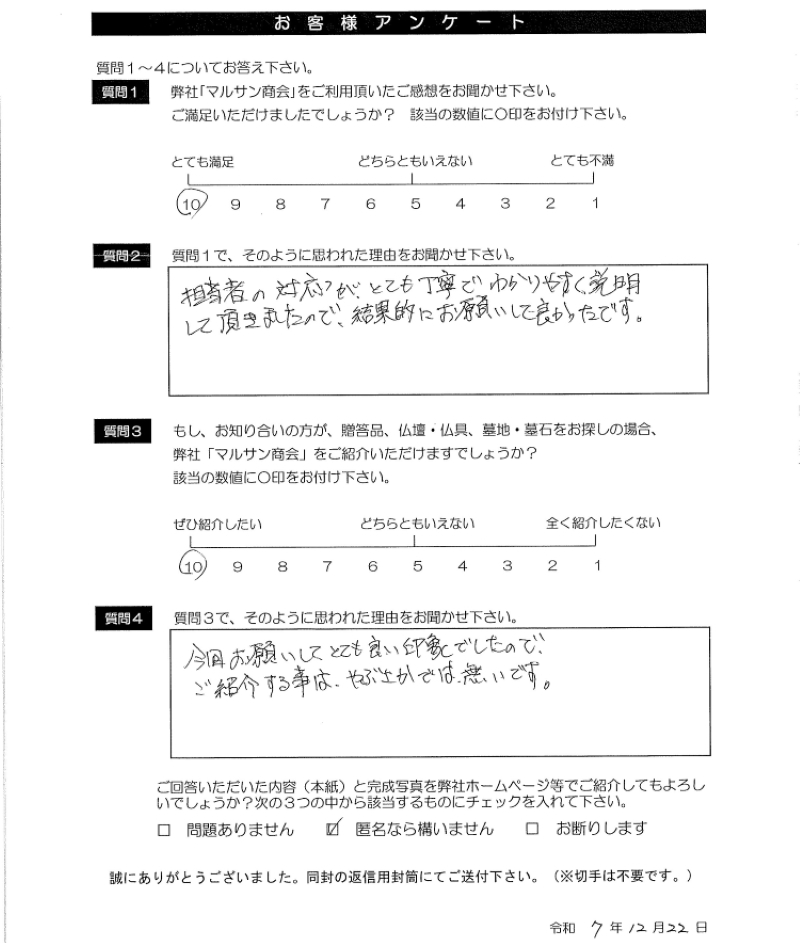 お客様アンケート
質問1～4についてお答え下さい。
質問1 弊社「マルサン商会」をご利用頂いたご感想をお聞かせ下さい。
ご満足いただけましたでしょうか？ 該当の数値に〇印をお付け下さい。
とても満足 どちらともいえない とても不満
10 9 8 7 6 5 4 3 2 1
質問2 質問1で、そのように思われた理由をお聞かせ下さい。
担当者の対応が、とても丁寧でわかりやすく説明
して頂きましたので、結果的にお願いして良かったです。
質問3 もし、お知り合いの方が、贈答品、仏壇・仏具、墓地・墓石をお探しの場合、
弊社「マルサン商会」をご紹介いただけますでしょうか？
該当の数値に〇印をお付け下さい。
ぜひ紹介したい どちらともいえない 全く紹介したくない
10 9 8 7 6 5 4 3 2 1
質問4 質問3で、そのように思われた理由をお聞かせ下さい。
今回お願いしてとても良い印象でしたので、
ご紹介する事は、やぶさかでは無いです。
ご回答いただいた内容（本紙）と完成写真を弊社ホームページ等でご紹介してもよろし
いでしょうか？次の3つの中から該当するものにチェックを入れて下さい。
□ 問題ありません ☑ 匿名なら構いません □ お断りします
誠にありがとうございました。同封の返信用封筒にてご送付下さい。（※切手は不要です。）
令和 7 年 12 月 22 日